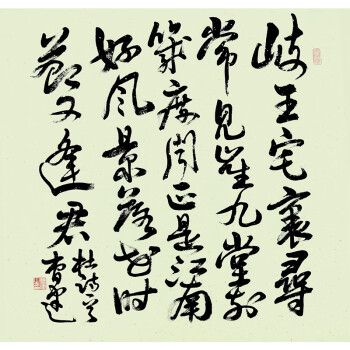 歧王宅裏尋
常見崔九堂前
幾度聞正是江南
好风景落花时
節又逢君
杜诗